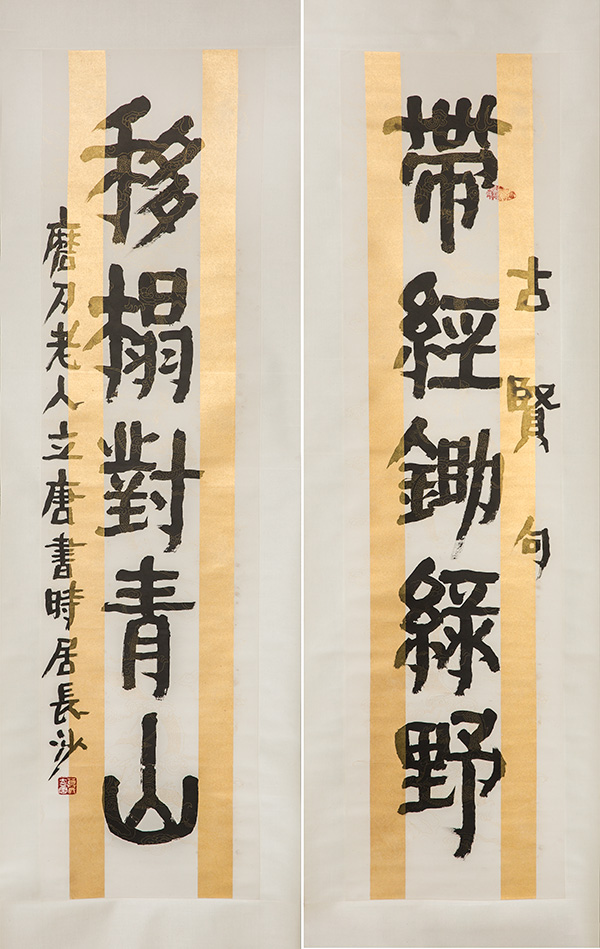 古賢句
帶經鋤綠野
移榻對青山
磨刀老人立唐書時居長沙